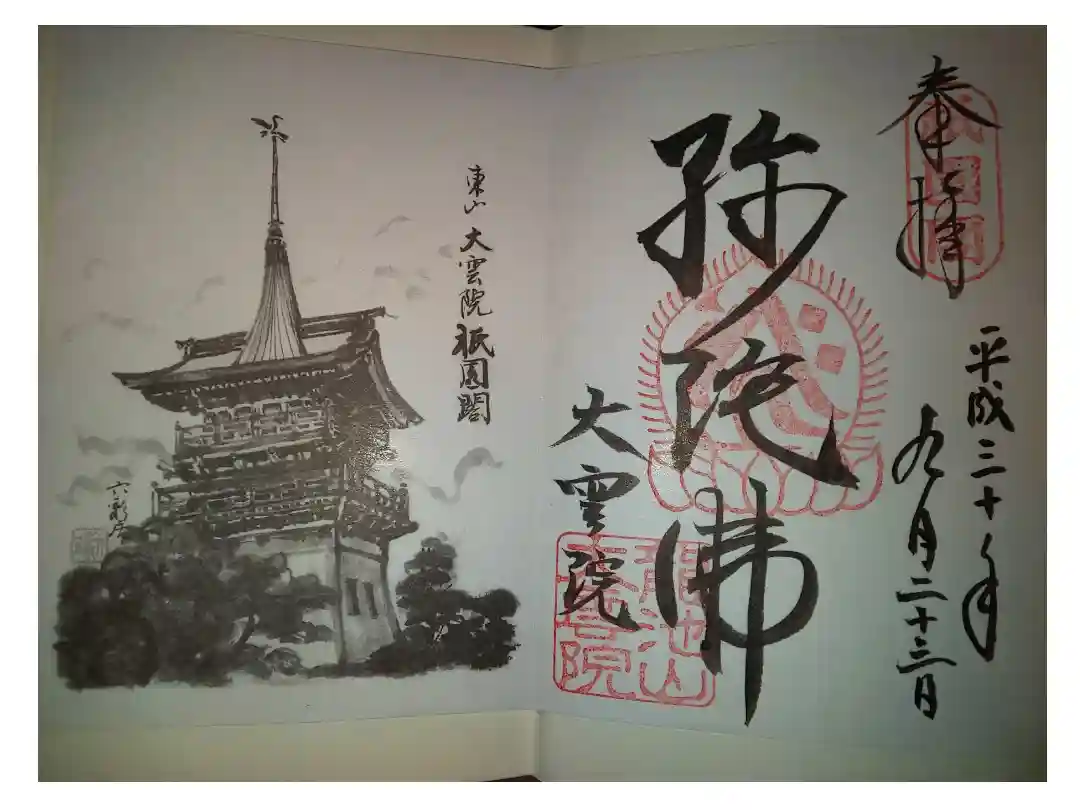 奉拝
平成三十年
九月二十三日
弥陀佛
大雲院
祇園閣
龍池山
大雲院
東山 大雲院 祇園閣